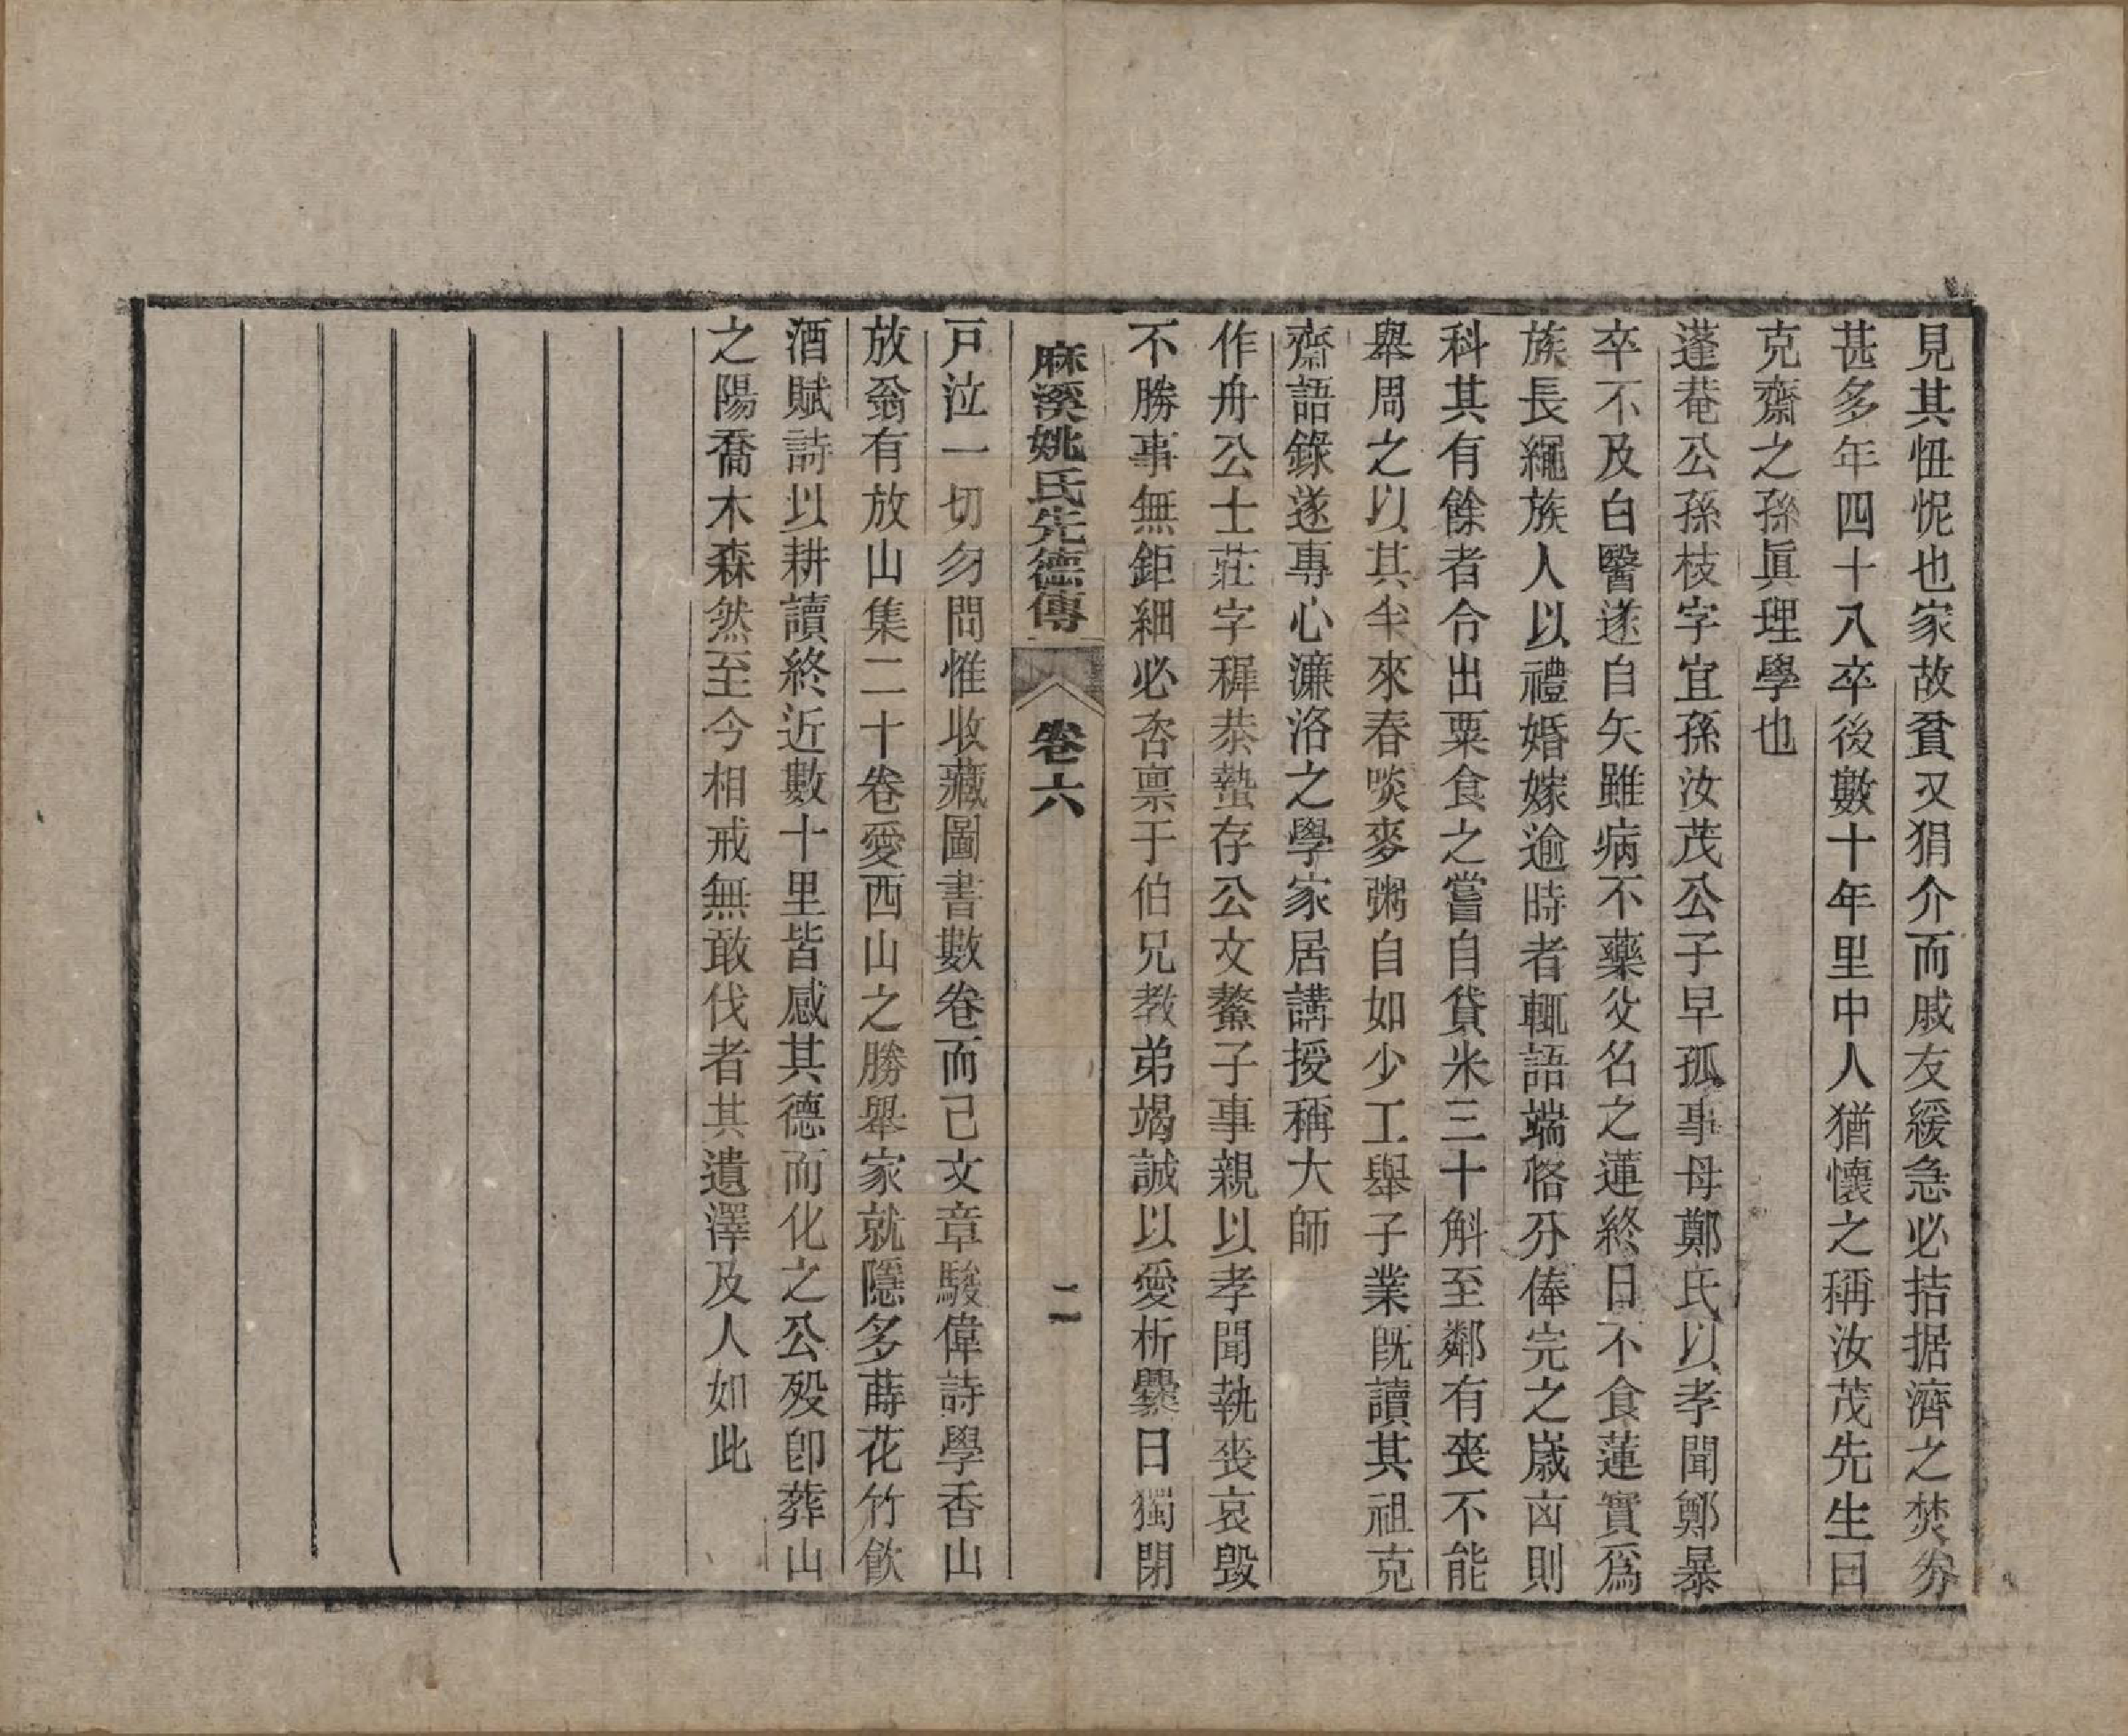 見其忸怩也家故貧又狷介而戚友緩急必拮据濟之焚券
甚多年四十八卒後數十年里中人猶懷之稱汝茂先生曰
克齋之孫眞理學也
蓬菴公孫枝字宜孫汝茂公子早孤事母鄭氏以孝聞鄭暴
卒不及白醫遂自矢雖病不藥父名之蓮終日不食蓮實爲
族長繩族人以禮婚嫁逾時者輒語端恪分俸完之歲凶則
科其有餘者令出粟食之嘗自貸米三十斛至鄰有喪不能
舉周之以其半來春啖麥粥自如少工舉子業旣讀其祖克
齋語錄遂專心濂洛之學家居講授稱大師
作舟公士莊字穉恭蟄存公文鰲子事親以孝聞執喪哀毀
不勝事無鉅細必咨禀于伯兄教弟竭誠以愛析爨日獨閉
麻溪姚氏先德傳　卷六　二
戸泣一切勿問惟收藏圖書數卷而已文章駿偉詩學香山
放翁有放山集二十卷愛西山之勝舉家就隱多蒔花竹飮
酒賦詩以耕讀終近數十里皆感其德而化之公殁卽葬山
之陽喬木森然至今相戒無敢伐者其遺澤及人如此